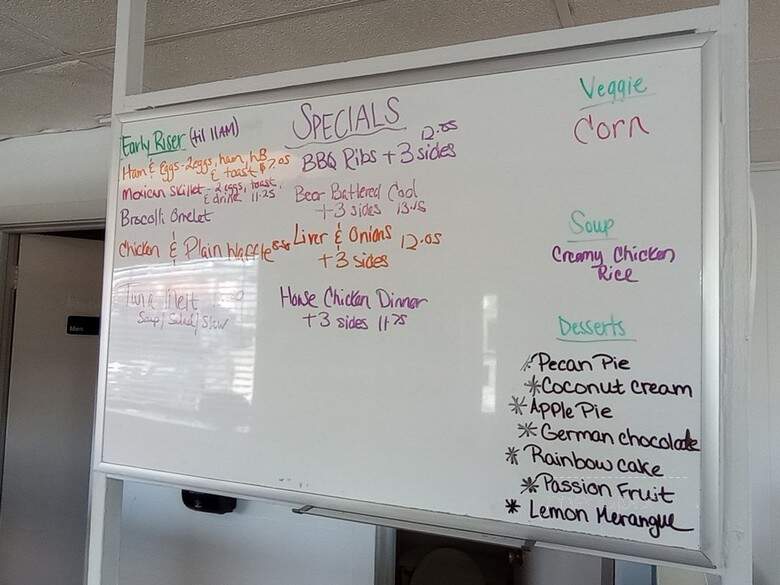 Early Riser (til 11AM)
Ham & Eggs - 2eggs, ham, hB
& toast $7.05
Mexican Skillet - 2 eggs, toast,
& drink 11.25
Brocolli Omelet
Chicken & Plain Waffle
Tuna Melt
Soup/Salad/Slaw
SPECIALS
12.05
BBQ Ribs + 3 sides
Beer Battered Cod
+ 3 sides 13.15
Liver & Onions 12.05
+ 3 sides
House Chicken Dinner
+ 3 sides 11.75
Veggie
Corn
Soup
Creamy Chicken
Rice
Desserts
* Pecan Pie
* Coconut cream
* Apple Pie
* German chocolade
* Rainbow cake
* Passion Fruit
* Lemon Merangue
Men